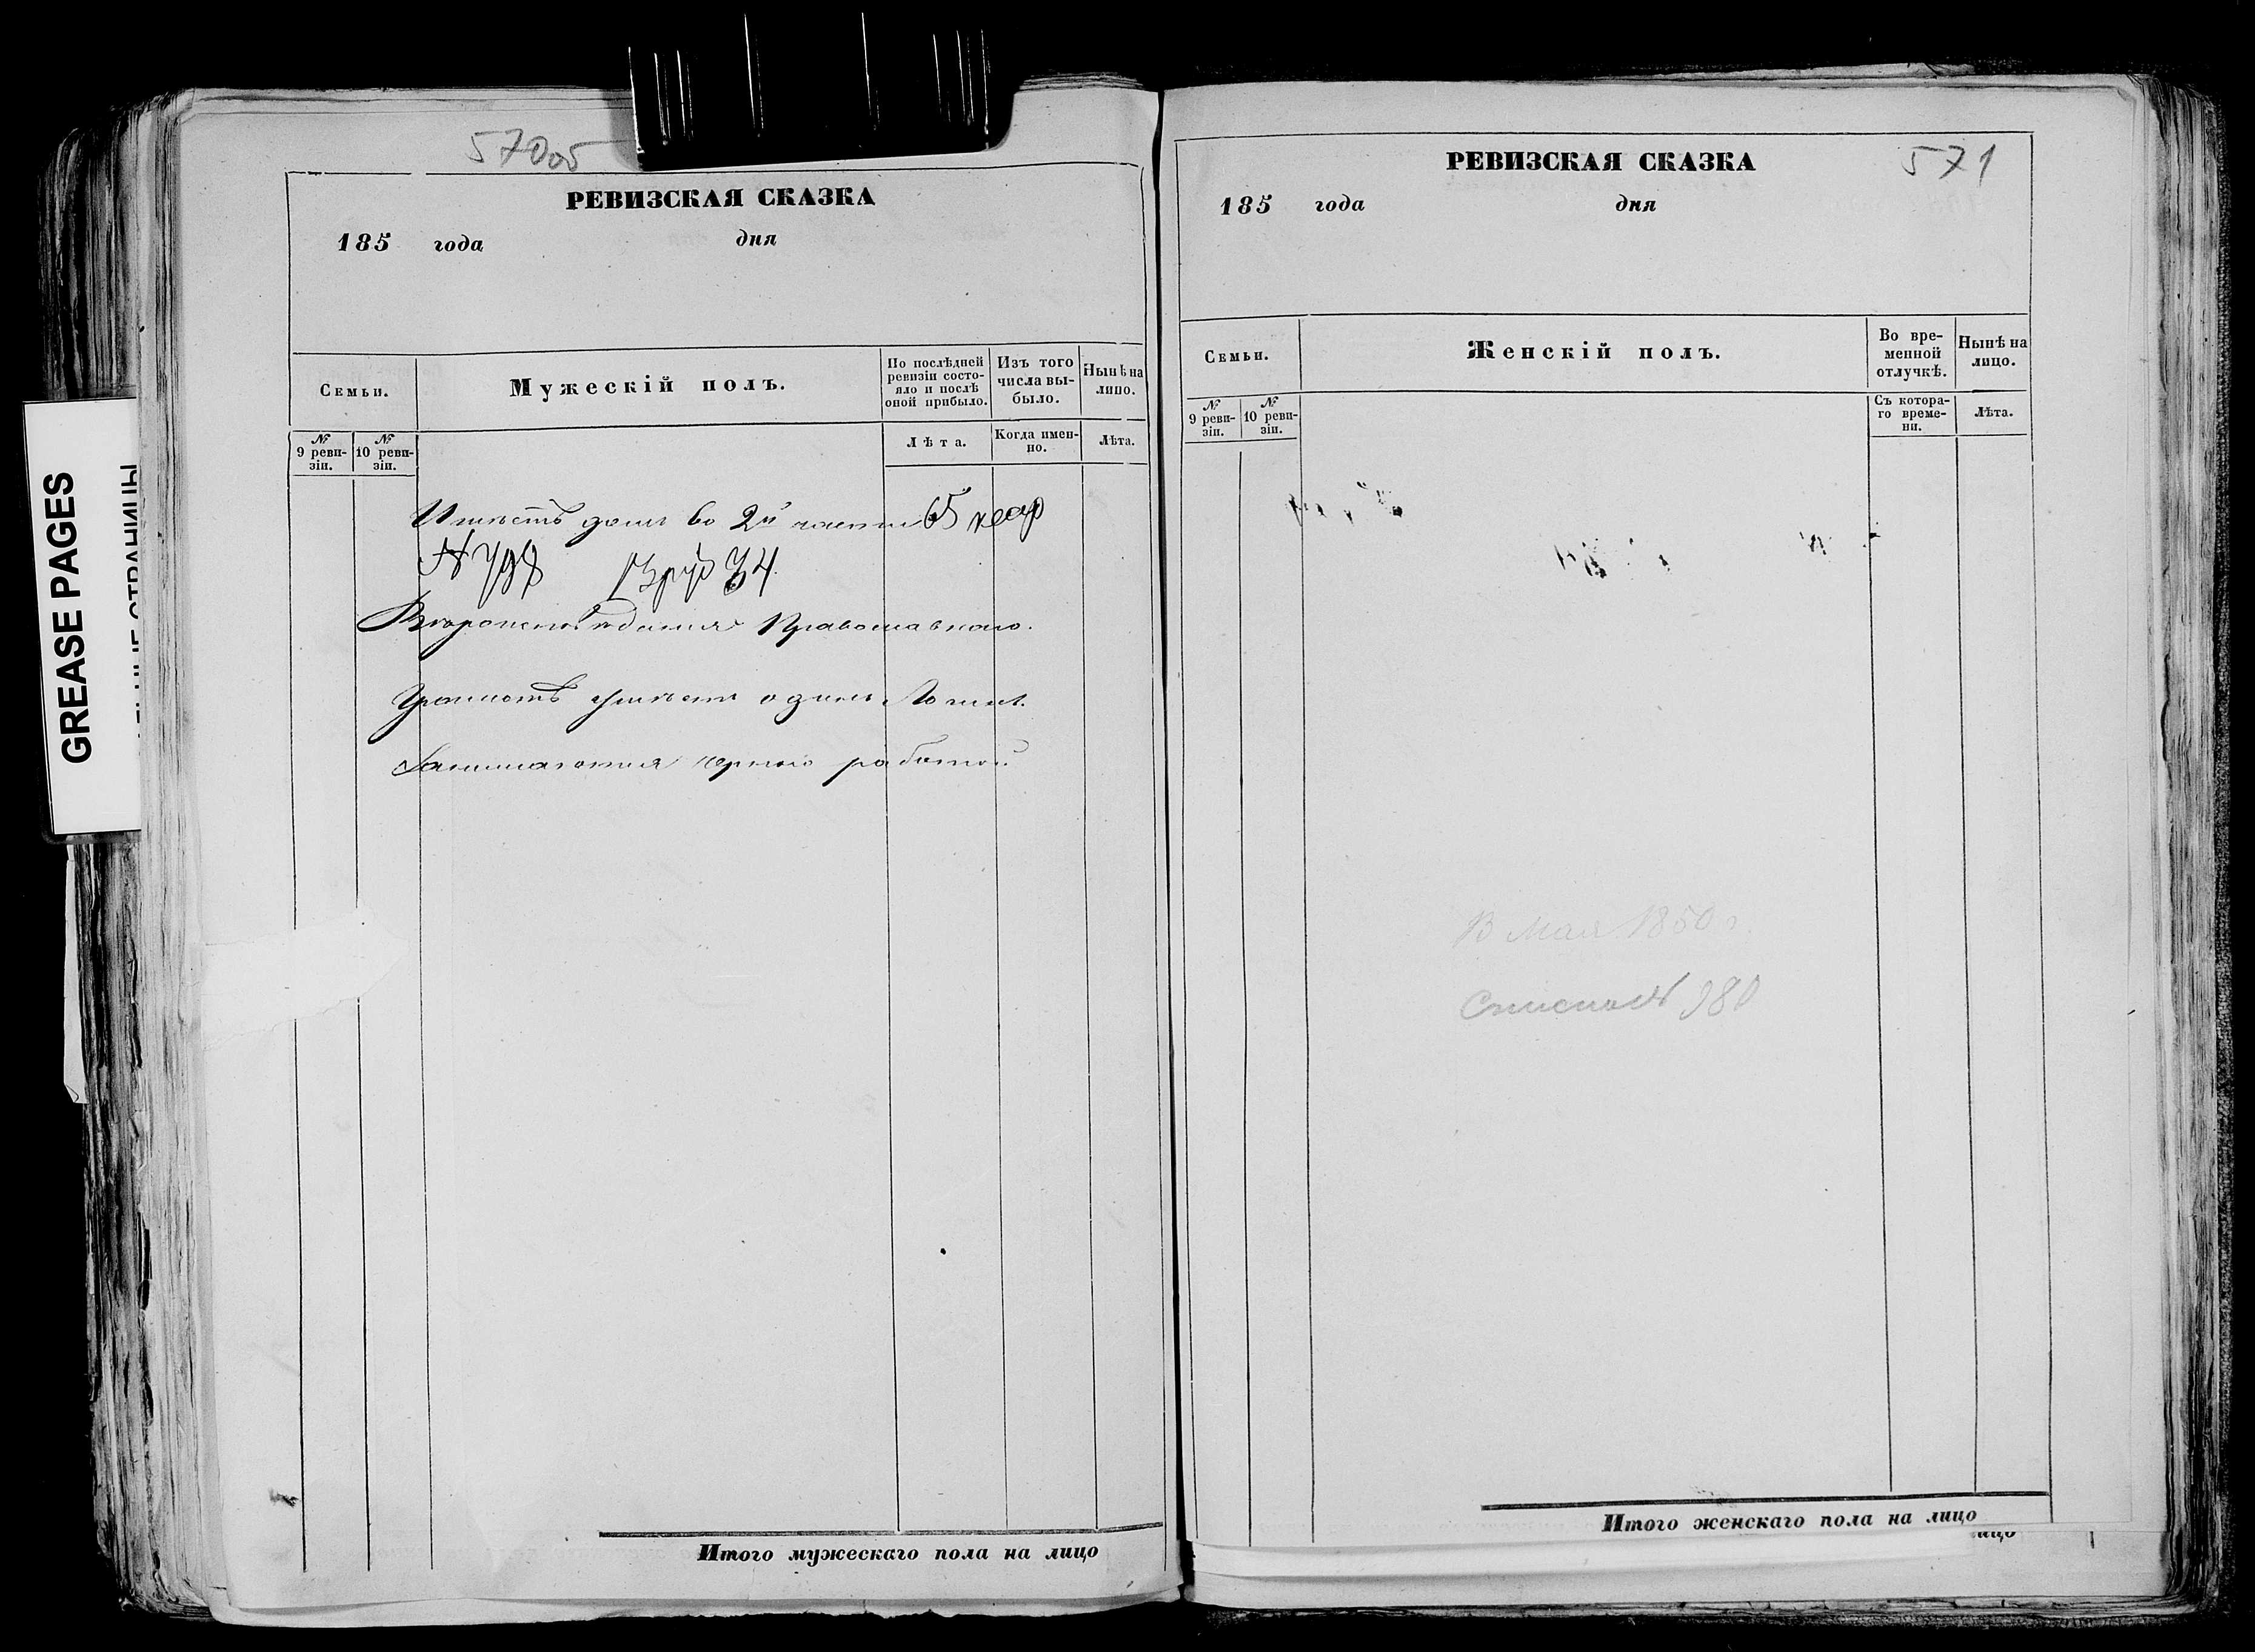 GREASE PAGES
570об
РЕВИЗСКАЯ СКАЗКА
185 года дня
Семьи. Мужескій полъ. По послѣдней ревизіи состояло и послѣ оной прибыло. Изъ того числа выбыло. Нынѣ на лицо.
№ 9 ревизіи. № 10 ревизіи. Лѣта. Когда именно. Лѣта.
Имѣетъ домъ во 2й части 65 квар
№ 798
Вѣроисповѣданія Православнаго.
Грамотѣ умѣетъ одинъ
Занимаются черною работой
Итого мужескаго пола на лицо
571
РЕВИЗСКАЯ СКАЗКА
185 года дня
Семьи. Женскій полъ. Во временной отлучкѣ. Нынѣ на лицо.
№ 9 ревизіи. № 10 ревизіи. Съ котораго времени. Лѣта.
В Мая 1850 г.
980
Итого женскаго пола на лицо